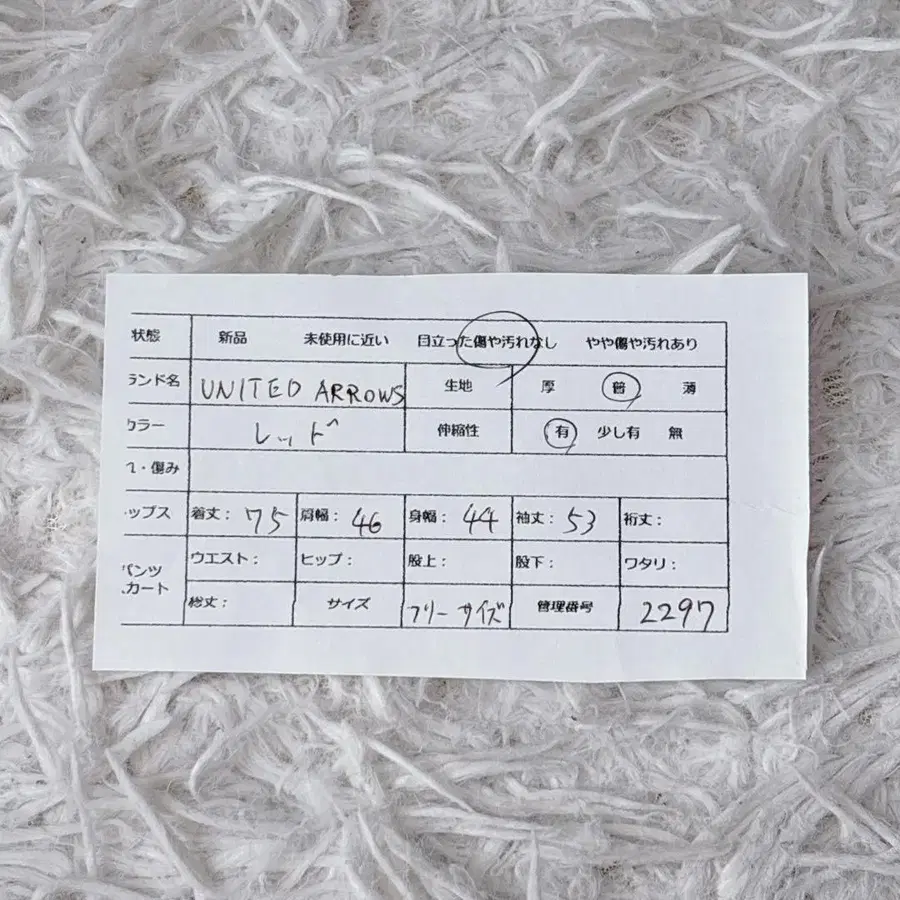 状態 新品 未使用に近い 目立った傷や汚れなし やや傷や汚れあり
ランド名 UNITED ARROWS 生地 厚 普 薄
カラー レッド 伸縮性 有 少し有 無
・傷み
ップス 着丈: 75 肩幅: 46 身幅: 44 袖丈: 53 裄丈:
パンツ ウエスト: ヒップ: 股上: 股下: ワタリ:
カート 総丈: サイズ フリーサイズ 管理番号 2297